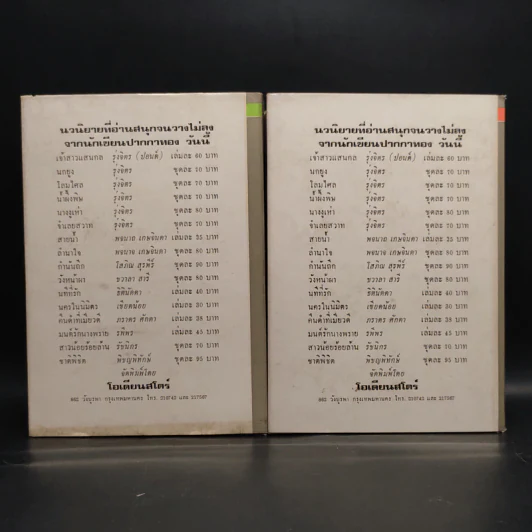 นวนิยายที่อ่านสนุกจนวางไม่ลง
จากนักเขียนปากกาทอง วันนี้
เจ้าสาวแสนกล รุ่งจิตร (ปอนด์) เล่มละ 60 บาท
นกยูง รุ่งจิตร ชุดละ 80 บาท
โฉมโศล รุ่งจิตร ชุดละ 70 บาท
น้ำผึ้งพิษ รุ่งจิตร ชุดละ 70 บาท
นางงูเห่า รุ่งจิตร ชุดละ 80 บาท
จันลยสวาท รุ่งจิตร ชุดละ 70 บาท
สายน้ำ พจมาน เกษจินดา เล่มละ 35 บาท
ลำนาใจ พจมาน เกษจินดา ชุดละ 80 บาท
กำนันถึก โสภิณ สุรพีร์ ชุดละ 90 บาท
วังหน้าผา ชวาลา สารี ชุดละ 80 บาท
นทีที่รัก ธิติมัดดา เล่มละ 40 บาท
นครในนิมิตร เชิดน้อย เล่มละ 30 บาท
คืนค่ำที่เมียวดี ภราดร ศักดา เล่มละ 38 บาท
มนต์รักนางพราย รพีพร เล่มละ 45 บาท
สาวน้อยร้อยล้าน รัชนิกร ชุดละ 70 บาท
ชาติพิชิต พิชญ์พิทักษ์ ชุดละ 95 บาท
จัดพิมพ์โดย
โอเดียนสโตร์
862 วังบูรพา กรุงเทพมหานคร โทร.
นวนิยายที่อ่านสนุกจนวางไม่ลง
จากนักเขียนปากกาทอง วันนี้
เจ้าสาวแสนกล รุ่งจิตร (ปอนด์) เล่มละ 60 บาท
นกยูง รุ่งจิตร ชุดละ 80 บาท
โฉมโศล รุ่งจิตร ชุดละ 70 บาท
น้ำผึ้งพิษ รุ่งจิตร ชุดละ 70 บาท
นางงูเห่า รุ่งจิตร ชุดละ 80 บาท
จันลยสวาท รุ่งจิตร ชุดละ 70 บาท
สายน้ำ พจมาน เกษจินดา เล่มละ 35 บาท
ลำนาใจ พจมาน เกษจินดา ชุดละ 80 บาท
กำนันถึก โสภิณ สุรพีร์ ชุดละ 90 บาท
วังหน้าผา ชวาลา สารี ชุดละ 80 บาท
นทีที่รัก ธิติมัดดา เล่มละ 40 บาท
นครในนิมิตร เชิดน้อย เล่มละ 30 บาท
คืนค่ำที่เมียวดี ภราดร ศักดา เล่มละ 38 บาท
มนต์รักนางพราย รพีพร เล่มละ 45 บาท
สาวน้อยร้อยล้าน รัชนิกร ชุดละ 70 บาท
ชาติพิชิต พิชญ์พิทักษ์ ชุดละ 95 บาท
จัดพิมพ์โดย
โอเดียนสโตร์
862 วังบูรพา กรุงเทพมหานคร โทร.